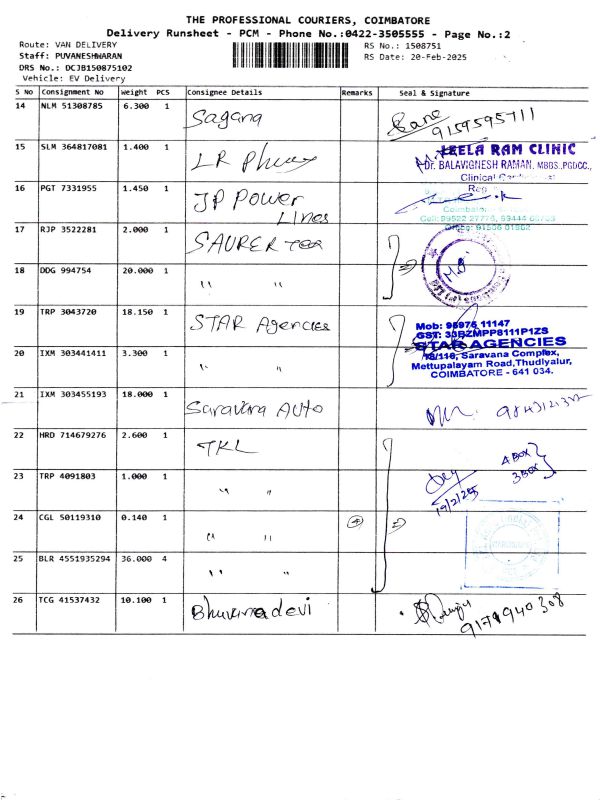 THE PROFESSIONAL COURIERS, COIMBATORE
Delivery Runsheet - PCM - Phone No.:0422-3505555 - Page No.:2
Route: VAN DELIVERY RS No.: 1508751
Staff: PUVANESHWARAN RS Date: 20-Feb-2025
DRS No.: DCJB150875102
Vehicle: EV Delivery
S No Consignment No Weight PCS Consignee Details Remarks Seal & Signature
14 NLM 51308785 6.300 1 Sagana
15 SLM 364817081 1.400 1 LR
LEELA RAM CLINIC
Dr. BALAVIGNESH RAMAN, MBBS.,PGDCC.,
16 PGT 7331955 1.450 1 JP Power
Lines
17 RJP 3522281 2.000 1 SAURER Tex
18 DDG 994754 20.000 1 " "
19 TRP 3043720 18.150 1 STAR Agencies
Mob: 95976 11147
GST: 33BZMPP8111P1ZS
STAR AGENCIES
18/116, Saravana Complex,
Mettupalayam Road,Thudiyalur,
COIMBATORE - 641 034.
20 IXM 303441411 3.300 1 " "
21 IXM 303455193 18.000 1 Saravana Auto
22 HRD 714679276 2.600 1 TKL
4 BOX
3 BOX
23 TRP 4091803 1.000 1 " "
19/2/25
24 CGL 50119310 0.140 1 " " 4
25 BLR 4551935294 36.000 4 " "
26 TCG 41537432 10.100 1 Bhuvanadevi